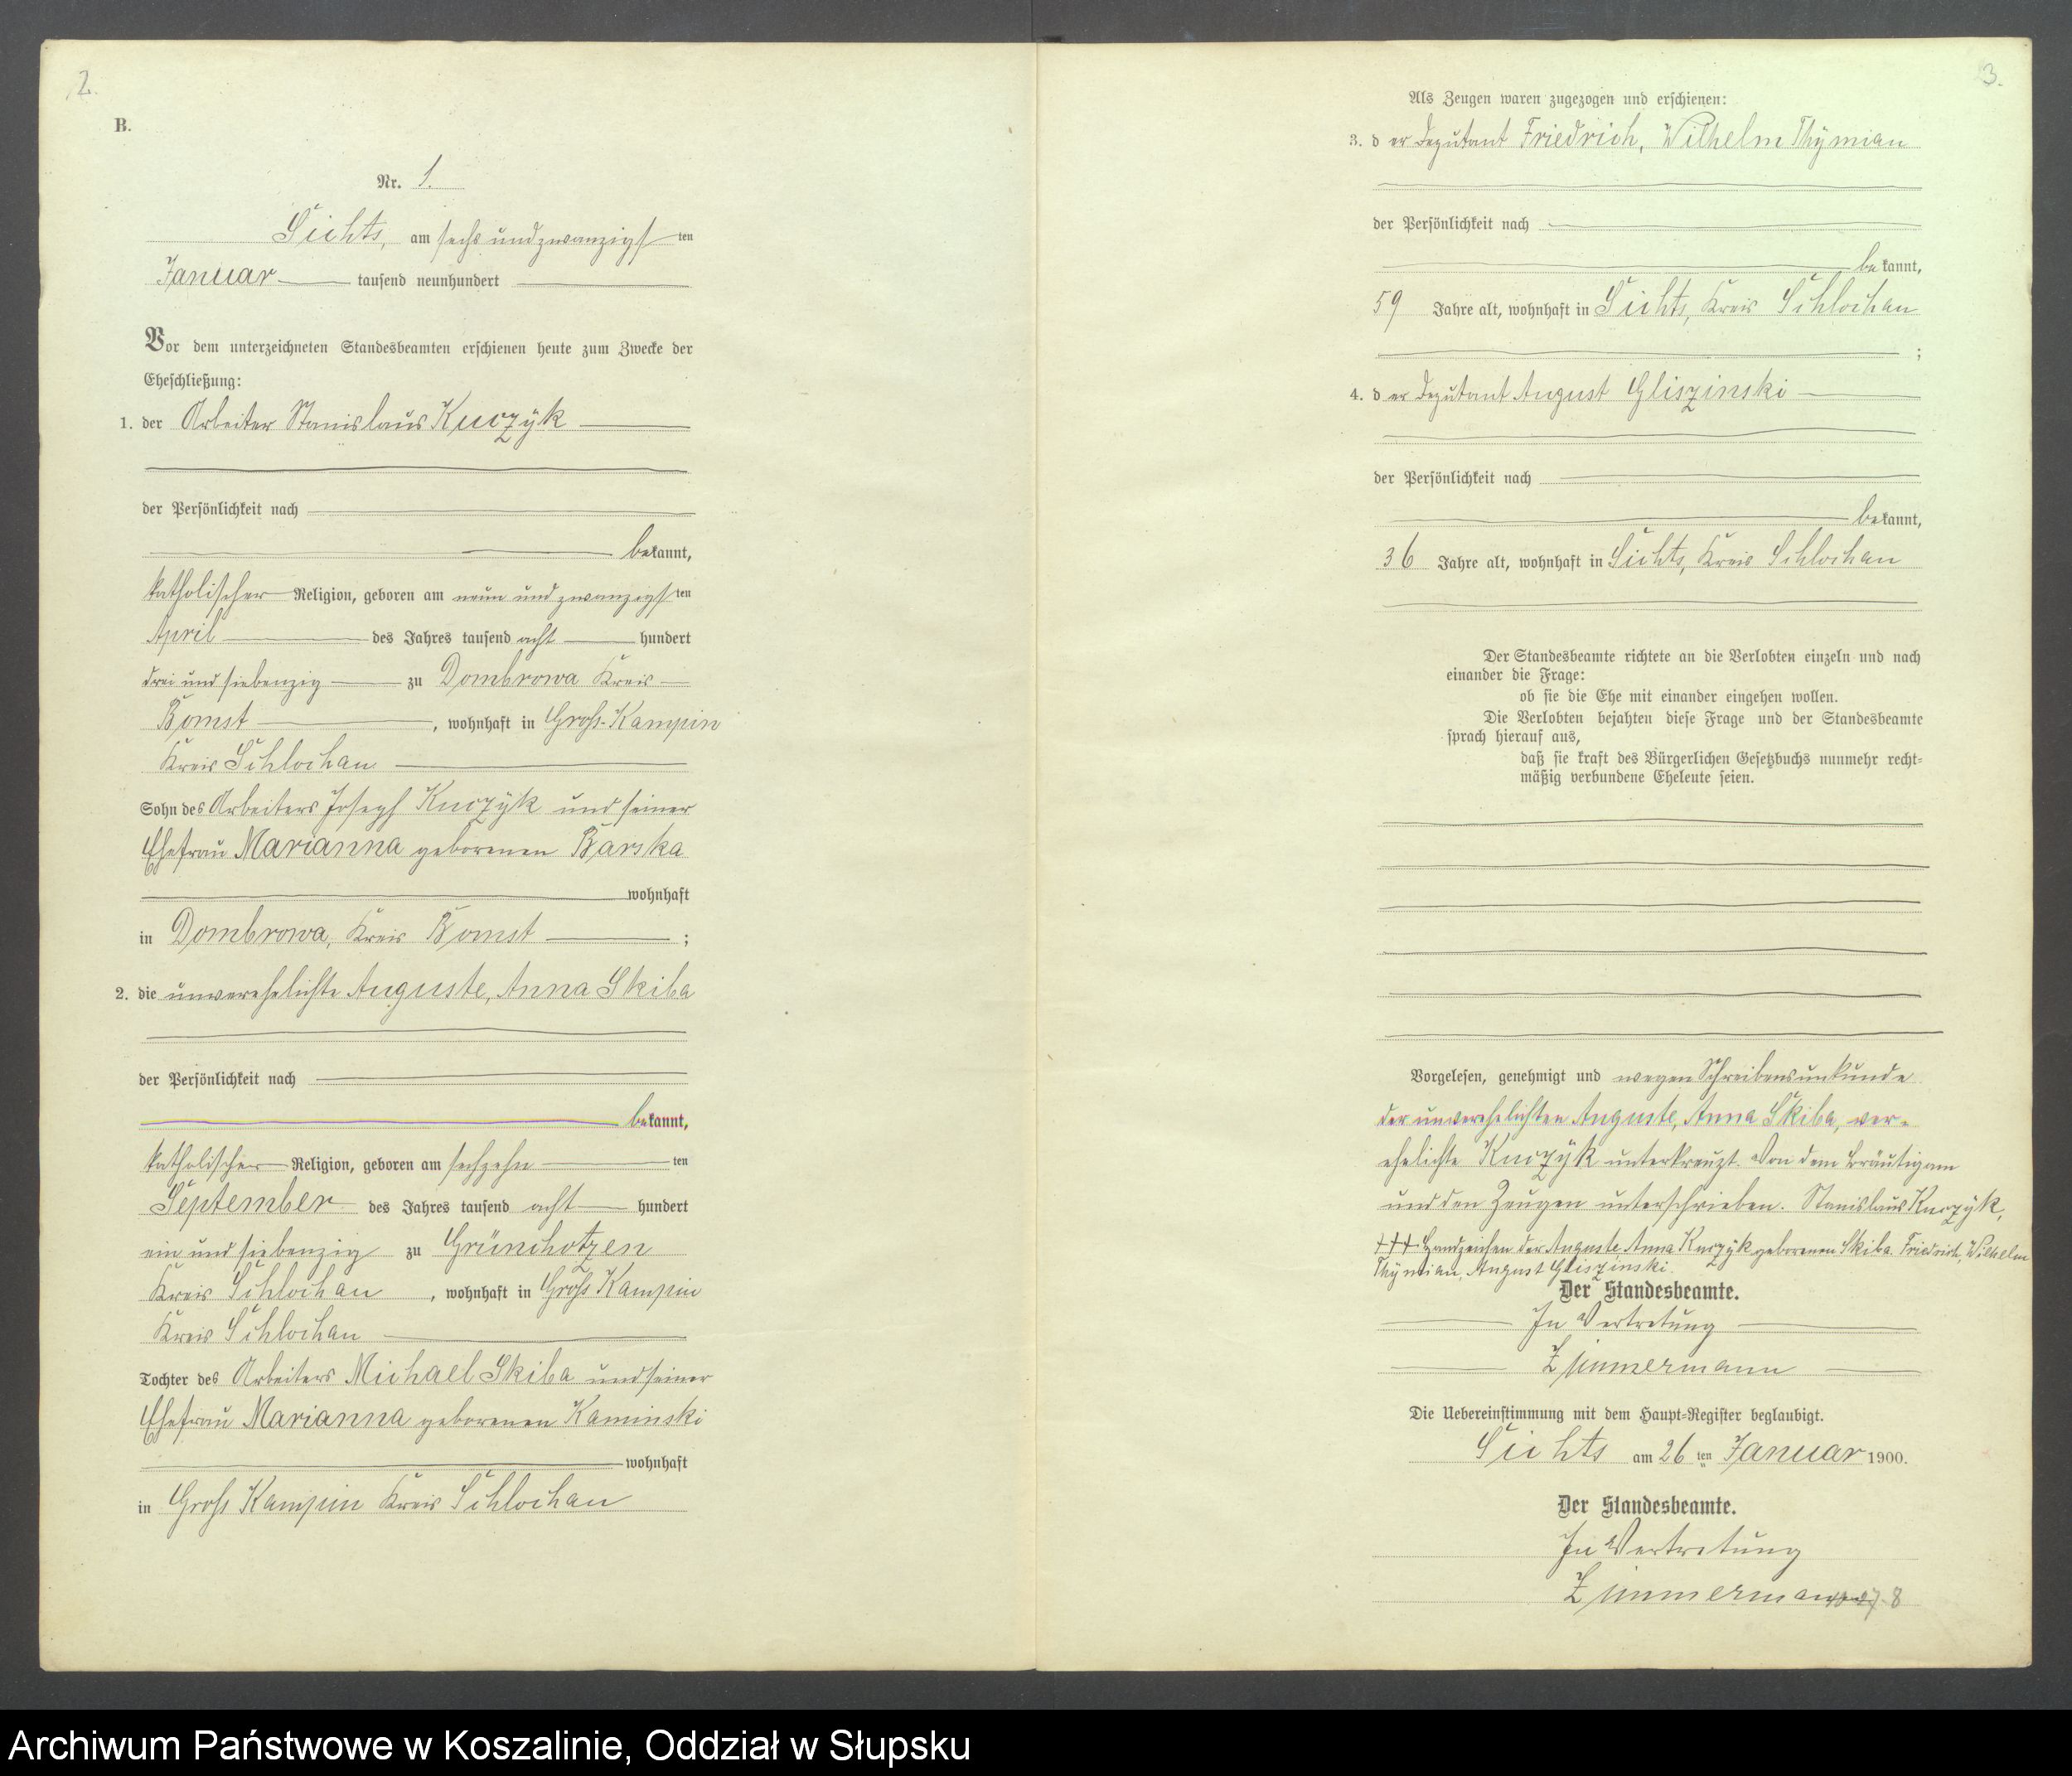 2.
B.
Nr. 1.
Sichts, am sechs und zwanzigsten
Januar tausend neunhundert
Vor dem unterzeichneten Standesbeamten erschienen heute zum Zwecke der
Eheschließung:
1. der Arbeiter Stanislaus Kuczÿk
der Persönlichkeit nach
bekannt,
katholischer Religion, geboren am neun und zwanzigsten
April des Jahres tausend acht hundert
drei und siebenzig zu Dombrowa Kreis
Bomst, wohnhaft in Groß-Kampin
Kreis Schlochau
Sohn des Arbeiters Joseph Kuczÿk und seiner
Ehefrau Marianna geborenen Barska
wohnhaft
in Dombrowa, Kreis Bomst;
2. die unverehelichte Auguste, Anna Skiba
der Persönlichkeit nach
bekannt,
katholischer Religion, geboren am sechzehnten
September des Jahres tausend acht hundert
ein und siebenzig zu Grünchotzen
Kreis Schlochau, wohnhaft in Groß Kampin
Kreis Schlochau
Tochter des Arbeiters Michael Skiba und seiner
Ehefrau Marianna geborenen Kaminski
wohnhaft
in Groß Kampin Kreis Schlochau
3.
Als Zeugen waren zugezogen und erschienen:
3. der Deputant Friedrich, Wilhelm Thÿmian
der Persönlichkeit nach
bekannt,
59 Jahre alt, wohnhaft in Sichts, Kreis Schlochau
;
4. der Deputant August Gliszinski
der Persönlichkeit nach
bekannt,
36 Jahre alt, wohnhaft in Sichts, Kreis Schlochau
Der Standesbeamte richtete an die Verlobten einzeln und nach
einander die Frage:
ob sie die Ehe mit einander eingehen wollen.
Die Verlobten bejahten diese Frage und der Standesbeamte
sprach hierauf aus,
daß sie kraft des Bürgerlichen Gesetzbuchs nunmehr recht-
mäßig verbundene Eheleute seien.
Vorgelesen, genehmigt und wegen Schreibensunkunde
der unverehelichten Auguste, Anna Skiba, ver-
ehelichte Kuczÿk unterkreuzt. Von dem Bräutigam
und den Zeugen unterschrieben. Stanislaus Kuczÿk,
+++ Handzeichen der Auguste, Anna Kuczÿk geborenen Skiba. Friedrich, Wilhelm
Thÿmian, August Gliszinski.
Der Standesbeamte.
In Vertretung
Zimmermann
Die Uebereinstimmung mit dem Haupt-Register beglaubigt.
Sichts am 26 ten Januar 1900.
Der Standesbeamte.
In Vertretung
Zimmermann
Archiwum Państwowe w Koszalinie, Oddział w Słupsku